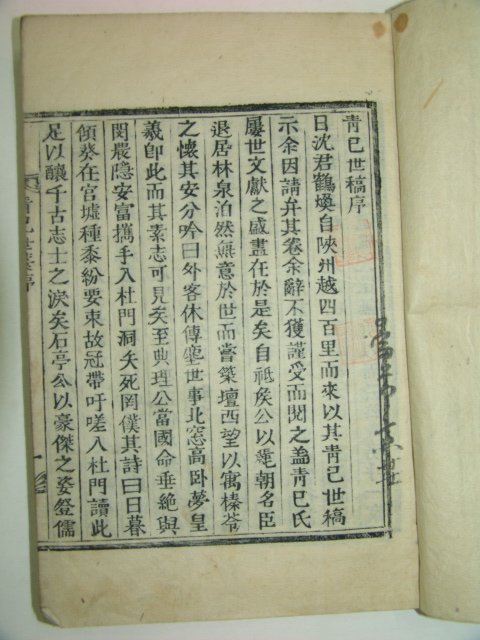 靑己世稿序
日沈君鶴煥自陜州越四百里而來以其靑己世稿
示余因請弁其卷余辭不獲謹受而閱之盖靑己氏
屢世文獻之盛盡在於是矣自祗侯公以麗朝名臣
退居林泉泊然無意於世而嘗築壇西望以寓榛苓
之懷其安分吟曰外客休傳塵世事北窓高卧夢皇
羲卽此而其素志可見矣至典理公當國命垂絶與
閔農隱安富携手入杜門洞矢死罔僕其詩曰日暮
傾葵在官墟種黍紛要束故冠帶吁嗟入杜門讀此
足以釀千古志士之淚矣石亭公以豪傑之姿登儒
靑己世稿序